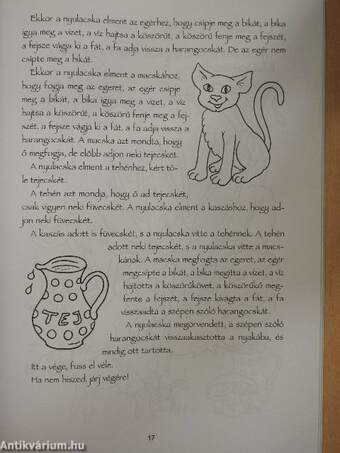 Ekkor a nyulacska elment az egérhez, hogy csípje meg a bikát, a bika
igya meg a vizet, a víz hajtsa a köszörűt, a köszörű fenje meg a fejszét,
a fejsze vágja ki a fát, a fa adja vissza a harangocskát. De az egér nem
csípte meg a bikát.
Ekkor a nyulacska elment a macskához,
hogy fogja meg az egeret, az egér csípje
meg a bikát, a bika igya meg a vizet, a víz
hajtsa a köszörűt, a köszörű fenje meg a fej-
szét, a fejsze vágja ki a fát, a fa adja vissza a
harangocskát. A macska azt mondta, hogy
ő megfogja, de előbb adjon neki tejecskét.
A nyulacska elment a tehénhez, kért tő-
le tejecskét.
A tehén azt mondja, hogy ő ad tejecskét,
csak vigyen neki füvecskét. A nyulacska elment a kaszáshoz, hogy ad-
jon neki füvecskét.
A kaszás adott is füvecskét, s a nyulacska vitte a tehénnek. A tehén
adott neki tejecskét, s a nyulacska vitte a macs-
kának. A macska megfogta az egeret, az egér
megcsípte a bikát, a bika megitta a vizet, a víz
hajtotta a köszörűkövet, a köszörűkő meg-
fente a fejszét, a fejsze kivágta a fát, a fa
visszaadta a szépen szóló harangocskát.
A nyulacska megörvendett, a szépen szóló
harangocskát visszaakasztotta a nyakába, és
mindig ott tartotta.
TEJ
Itt a vége, fuss el véle.
Ha nem hiszed, járj végére!
17
Antikvárium.hu